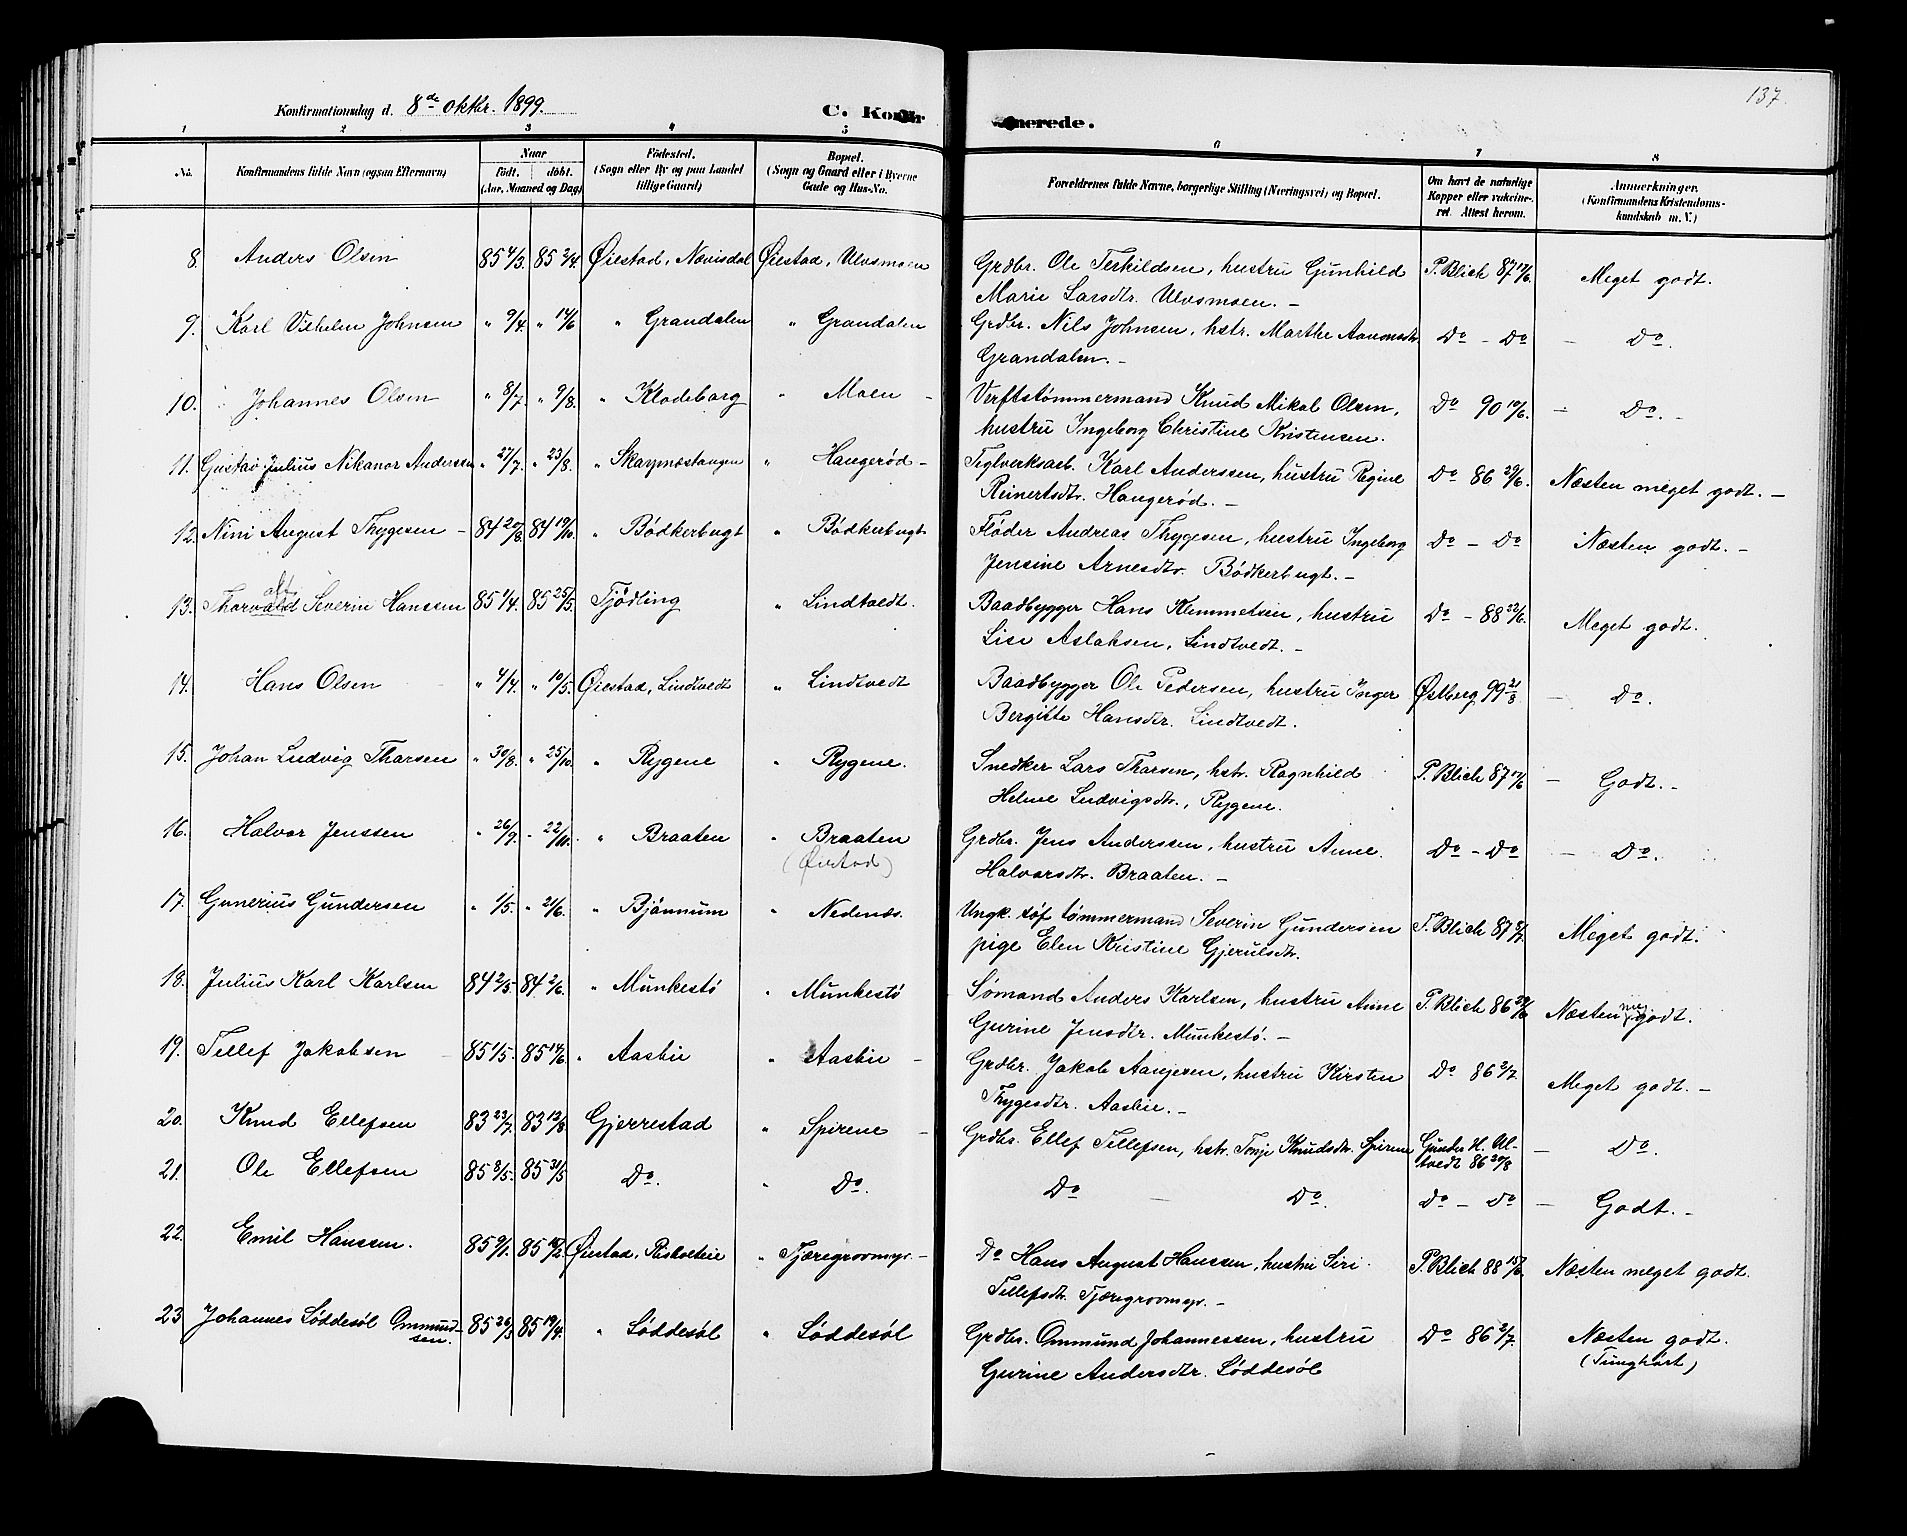 137.
Konfirmationsdag d. 8de oktbr. 1899.
C. Konfir
merede.
1 2 3 4 5 6 7 8
No.
Konfirmandens fulde Navn (ogsaa Efternavn)
Naar
Födt. döbt.
(Aar, Maaned og Dag)
Födested.
(Sogn eller By og paa Landet
tillige Gaard)
Bopæl.
(Sogn og Gaard eller i Byerne
Gade og Hus-No.
Forældrenes fulde Navne, borgerlige Stilling (Næringsvei) og Bopæl.
Om havt de naturlige
Kopper eller vakcine-
ret. Attest herom.
Anmærkninger.
(Konfirmandens Kristendoms-
kundskab m. V.)
8. Anders Olsen 85 4/3. 85 2/4. Øiestad, Nævisdal Øiestad, Ulvsmoen Grdbr. Ole Terkildsen, hustru Gunhild P. Blich 87 17/6. Meget godt.
Marie Larsdtr. Ulvsmoen. -
9. Karl Vilhelm Johnsen " 9/4. " 14/6 " Grandalen " Grandalen Grdbr. Nils Johnsen, hstr. Marthe Aanonsdtr. Do - Do - Do.
Grandalen. -
10. Johannes Olsen " 8/7. " 9/8. " Klodeborg " Moen - Verftstømmermand Knud Mikal Olsen, Do 90 19/6. - Do. -
hustru Ingeborg Christine Kristensen.
11. Gustav Julius Nikanor Anderssen " 27/7. " 23/8. " Skarpnæstangen " Haugerød - Teglverksarb. Karl Anderssen, hustru Regine Do 86 29/6. Næsten meget godt. -
Reinertsdtr. Haugerød. -
12. Nini August Thygesen - 84 20/8. 84 19/10. " Bödkerbugt " Bödkerbugt Fløder Andreas Thygesen, hustru Ingeborg Do - Do Næsten godt. -
Jensine Arnesdtr. Bödkerbugt. -
13. Thorvald Severin Hanssen 85 1/4. 85 25/5. Tjödling " Lindtvedt. Baadbygger Hans Klemmetsen, hustru Do - 88 22/6. Meget godt.
Lise Aslaksen, Lindtvedt. -
14. Hans Olsen " 4/4. " 10/5. Øiestad, Lindtvedt " Lindtvedt Baadbygger Ole Pedersen, hustru Inger Østberg 99 21/8 - Do.
Bergitte Hansdtr. Lindtvedt.
15. Johan Ludvig Tharsen " 30/8. " 25/10. " Rygene " Rygene. Snedker Lars Tharsen, hstr. Ragnhild P. Blich 87 17/6 - Godt. -
Helene Ludvigsdtr., Rygene.
16. Halvor Jenssen " 26/9. " 22/11. " Braaten " Braaten Grdbr. Jens Anderssen, hustru Anne Do - Do - Do.
(Øiestad)
Halvorsdtr. Braaten. -
17. Gunerius Gundersen " 1/5. " 21/6. " Bjännum " Nedenæs. Ungk. söf tømmermand Severin Gundersen P. Blich 87 2/7. Meget godt.
pige Elen Kristine Gjerulsdtr.
18. Julius Karl Karlsen 84 2/5. 84 2/6. " Munkestö " Munkestö Sømand Anders Karlsen, hustru Anne P. Blich 86 29/6 Næsten godt.
Gurine Jensdtr. Munkestø. -
19. Tellef Jakobsen 85 1/5. 85 14/6. " Aasbie " Aasbie - Grdbr. Jakob Aanjesen, hustru Kirsten Do 86 2/7. Meget godt. -
Thygesdtr. Aasbie. -
20. Knud Ellefsen 83 23/7. 83 12/8. Gjerrestad " Spirene - Grdbr. Ellef Tellefsen, hstr. Tonje Knudsdtr. Spirene Gunder H. Ul- - Do.
tvedt 86 20/8
21. Ole Ellefsen 85 8/5. 85 31/5 Do. " Do. Do - Do. Do - Do - Godt. -
22. Emil Hanssen. 85 9/1. 85 15/2. Øiestad, Risholteie " Tjæregroomyr. - Do Hans August Hanssen, hustru Siri P. Blich 88 15/6. Næsten meget godt.
Tellefsdtr. Tjæregroomyr. -
23. Johannes Løddesøl Ommund- 85 26/3 85 19/4. " Løddesøl " Løddesøl Grdbr. Ommund Johannessen, hustru Do 86 2/7. Næsten godt.
sen. (Tunghört)
Gurine Andersdtr. Løddesøl